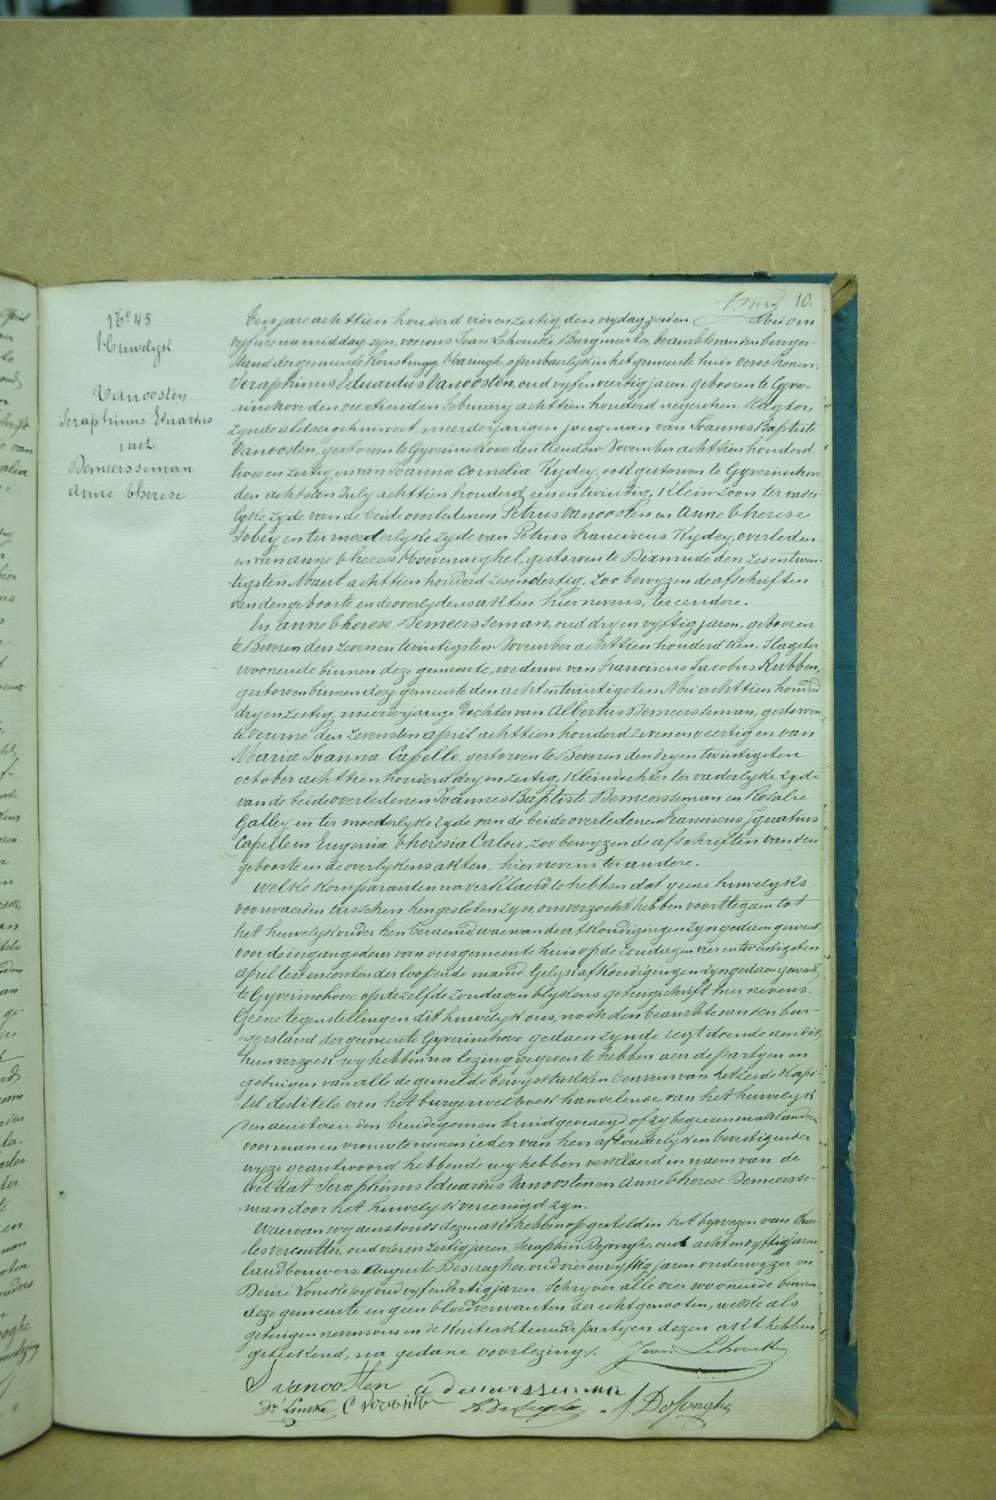 10.
No 45
Huwelyk
Vanoosten
Seraphinus Eduardus
met
Demeersseman
Anne Therese
Ten jare achttien honderd vier en zestig den vrydag zesden Mei om
vyf uren namiddag, zyn, voor ons Jean Lehoucke, Burgmeester, beambte van den burger-
stand der gemeente Haringe, openbaerlyk in het gemeente huis verschenen:
Seraphinus Eduardus Vanoosten, oud vyf en veertig jaren, geboren te Gyve-
rinckove den veertienden February achttien honderd negentien, Slagter,
zynde aldaer gehuisvest, meerderjarigen jongman van Joannes Baptiste
Vanoosten, gestorven te Gyverinckove den tienden November achttien honderd
twee en zestig en van Joanna Cornelia Kydey, ook gestorven te Gyverinchove
den achtsten July achttien honderd een en twintig, Klein Zoon ter vader-
lyke zyde van de beide overledenen Petrus Vanoosten en Anne Therese
en ter moederlyke zyde van Petrus Franciscus Kydey, overleden
en van anne Therese Hoevenaeghel, gestorven te Dixmude den zes en twin-
tigsten Maert achttien honderd zes en dertig. Zoo bewyzen de afschriften
van den geboorte en de overlydens akten hiernevens, ter eendere.
En anne Therese Demeersseman, oud dry en vyftig jaren, geboren
te Beveren den zeven en twintigsten November achttien honderd tien, Slagter
woonende binnen deze gemeente, weduwe van Franciscus Jacobus Rubben,
gestorven binnen deze gemeente den acht en twintigsten Mei achttien honderd
dry en zestig, meerderjarige Dochter van Albertus Demeersseman, gestorven
te Veurne den zevensten april achttien honderd zeven en veertig en van
Maria Joanna Capelle, gestorven te Beveren den dry en twintigsten
october achttien honderd dry en zestig, Kleindochter ter vaderlyke zyde
van de beide overledenen Joannes Baptiste Demeersseman en Rosalie
Galley en ter moederlyke zyde van de beide overledenen Franciscus Ignatius
Capelle en Eugenia Theresia Calou, zoo bewyzen de afschriften van den
geboorte en de overlydens akten, hier nevens ter andere.
Welke komparanten na verklaerd te hebben dat geene huwelyks
voorwaerden tusschen hen gesloten zyn, ons verzocht hebben voort te gaen tot
het huwelyk onder hen beraemd waervan de afkondigingen zyn gedaen geweest
voor de ingangsdeur van ons gemeente huis op de zondagen vier en twintigsten
april en eersten der loopende maend Gelyke afkondigingen zyn gedaen geweest
te Gyverinchove op dezelfde zondagen blykens getuigschrift hier nevens.
Geene tegenstellingen dit huwelyk ons, noch den beambte van den bur-
gerstand der gemeente Gyverinchove gedaen zynde regt doende aen dit
hun verzoek wy hebben na lezing gegeven te hebben aen de partyen en
getuigen van alle de gemelde bewysstukken benevens van het zesde Kapi-
tel des titels van het burger wetboek handelende van het huwelyk
den aenstaenden bruidegom en bruid gevraegd of zy begeeren malkanderen
voor man en vrouw te nemen ieder van hen afzonderlyk en bevestigender
wyze geantwoord hebbende wy hebben verklaerd in naem van de
wet dat Seraphinus Eduardus Vanoosten en Anne Therese Demeersse-
man door het huwelyk vereenigd zyn.
Waervan wy aenstonds dezen akt hebben opgesteld in het bywezen van Char-
les Vercoutter, oud vier en zestig jaren, Seraphin Dejonghe, oud acht en vyftig jaren
landbouwers, Auguste oud vier en vyftig jaren onderwyzer en
Desiré oud vyf en dertig jaren, Schryver alle vier woonende binnen
deze gemeente en geen bloedverwanten der echtgenooten, welke als
getuigen nevens ons en de kontrakterende partyen dezen akt hebben
geteekend, na gedane voorlezing. Jean Lehoucke
S vanoosten a demeersseman
Dé. S. DeJonghe